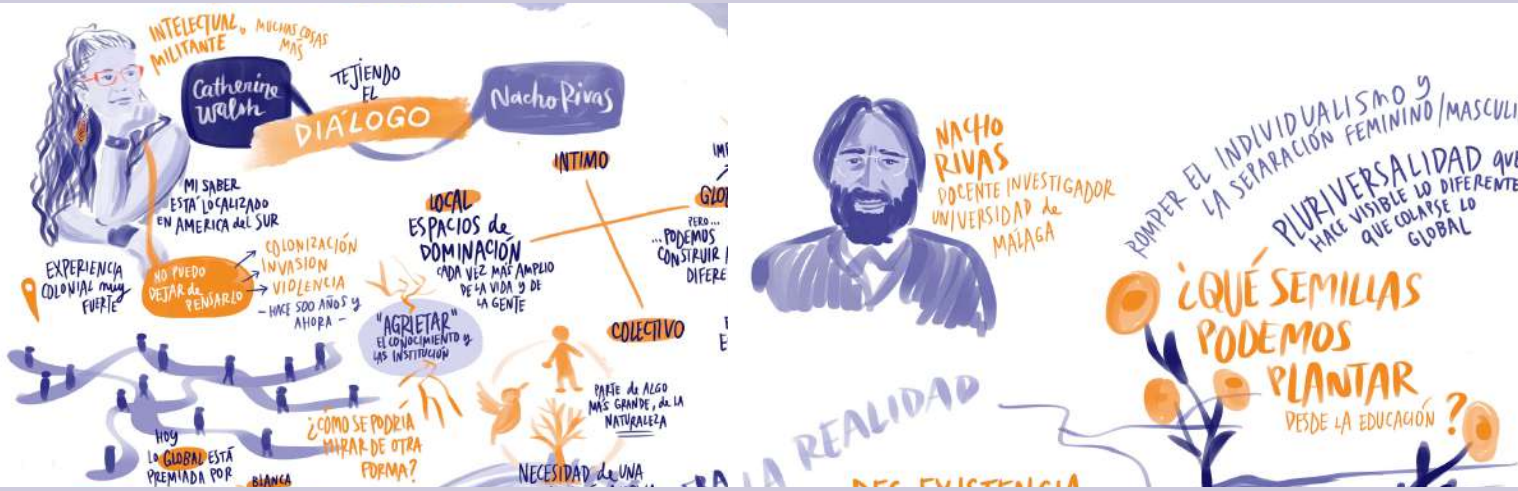 INTELECTUAL,
MILITANTE
MUCHAS COSAS
MÁS
Catherine
Walsh
TEJIENDO
EL
DIÁLOGO
Nacho Rivas
MI SABER
ESTÁ LOCALIZADO
EN AMERICA del SUR
EXPERIENCIA
COLONIAL muy
FUERTE
NO PUEDO
DEJAR de
PENSARLO
COLONIZACIÓN
INVASION
VIOLENCIA
- HACE 500 AÑOS y
AHORA -
LOCAL
ESPACIOS de
DOMINACIÓN
CADA VEZ MÁS AMPLIO
DE LA VIDA Y DE
LA GENTE
INTIMO
COLECTIVO
PERO...
...PODEMOS
CONSTRUIR
DIFERE
"AGRIETAR"
EL CONOCIMIENTO y
LAS INSTITUCIÓN
¿CÓMO SE PODRÍA
MIRAR DE OTRA
FORMA?
PARTE de ALGO
MÁS GRANDE, de LA
NATURALEZA
HOY
LO GLOBAL ESTÁ
PREMIADA POR
BLANCA
NECESIDAD de UNA
NACHO
RIVAS
DOCENTE INVESTIGADOR
UNIVERSIDAD de
MÁLAGA
ROMPER EL INDIVIDUALISMO y
LA SEPARACIÓN FEMININO/MASCULI
PLURIVERSALIDAD QUE
HACE VISIBLE LO DIFERENTE
QUE COLAPSE LO
GLOBAL
¿QUÉ SEMILLAS
PODEMOS
PLANTAR
DESDE LA EDUCACIÓN?
LA REALIDAD